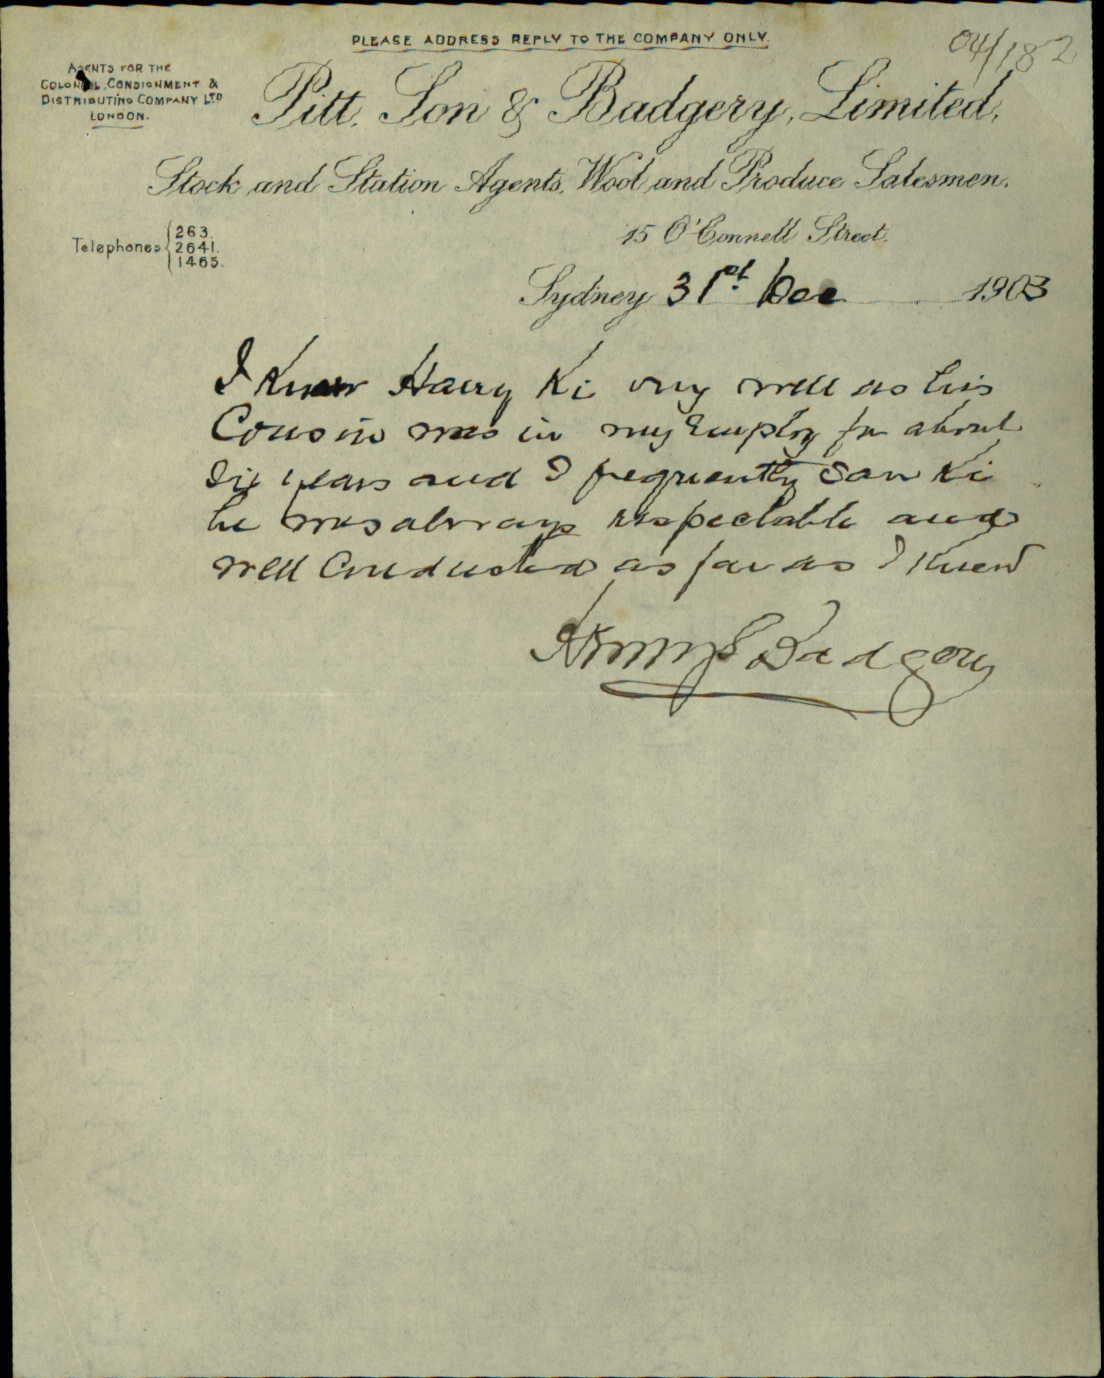 PLEASE ADDRESS REPLY TO THE COMPANY ONLY.
04/182
AGENTS FOR THE
COLONIAL CONSIGNMENT &
DISTRIBUTING COMPANY LTD
LONDON.
Pitt, Son & Badgery, Limited,
Stock and Station Agents, Wool and Produce Salesmen.
Telephones 263.
2641.
1465.
15 O'Connell Street.
Sydney 31st Dec 1903
I Knew Harry Ki very well as his
Cousin was in my Employ for about
Six years and I frequently saw Ki
he was always respectable and
well Conducted as far as I Knew
Henry S Badgery